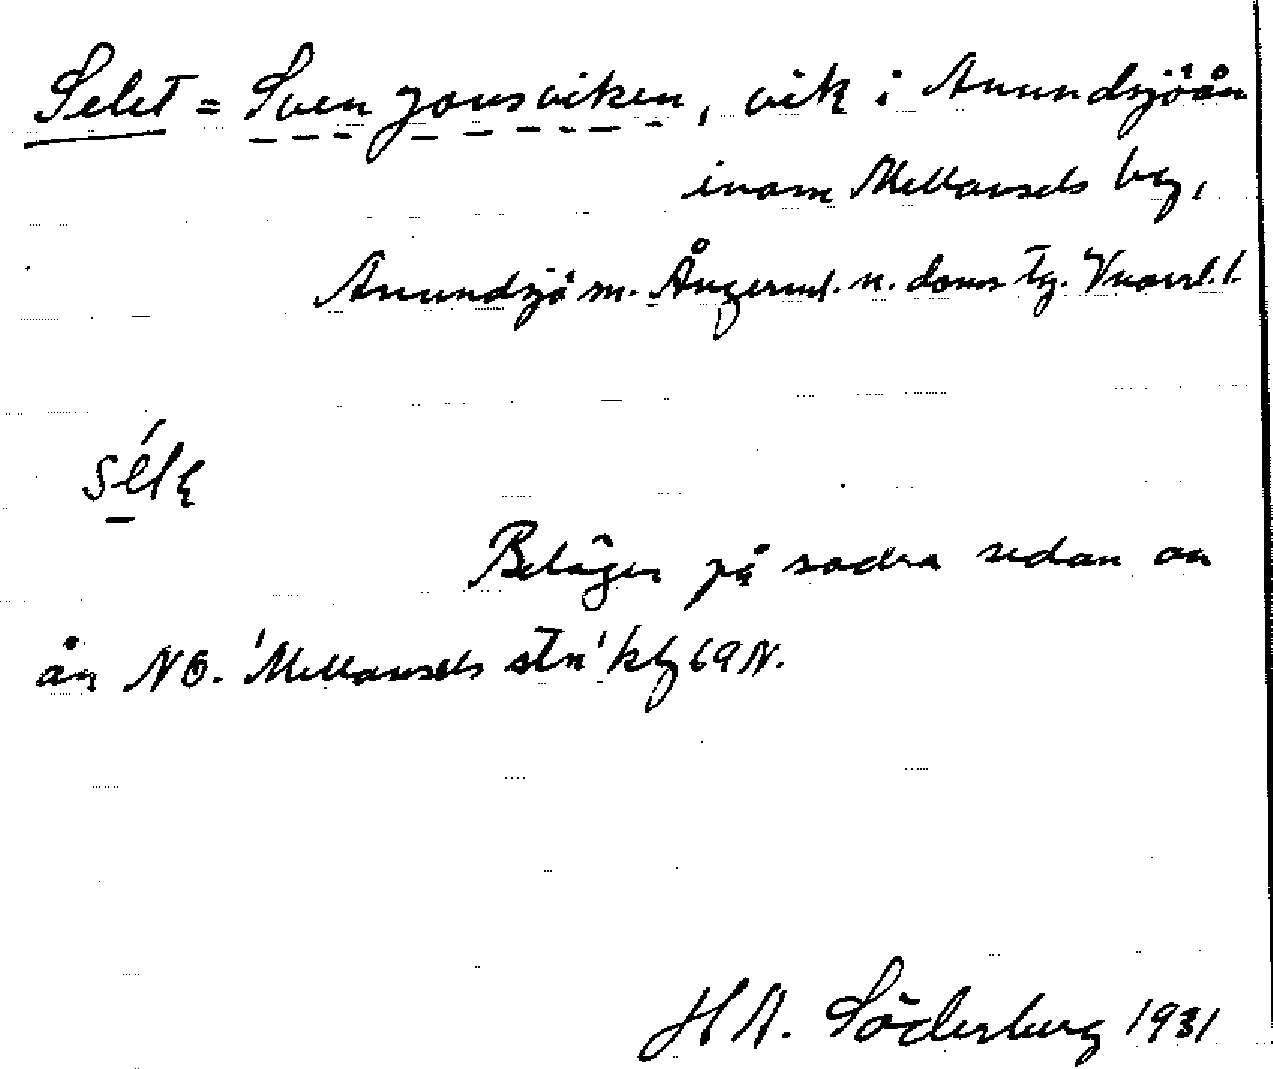 Selet = Svenjonsviken, vik i Anundsjöån
inom Mellansels by,
Anundsjö sn. Ångerml. n. doms tg. Vnorrl. l.
Belägen på södra sidan om
ån NO. 'Mellansels stn' kbl 69 N.
H A. Söderberg 1931